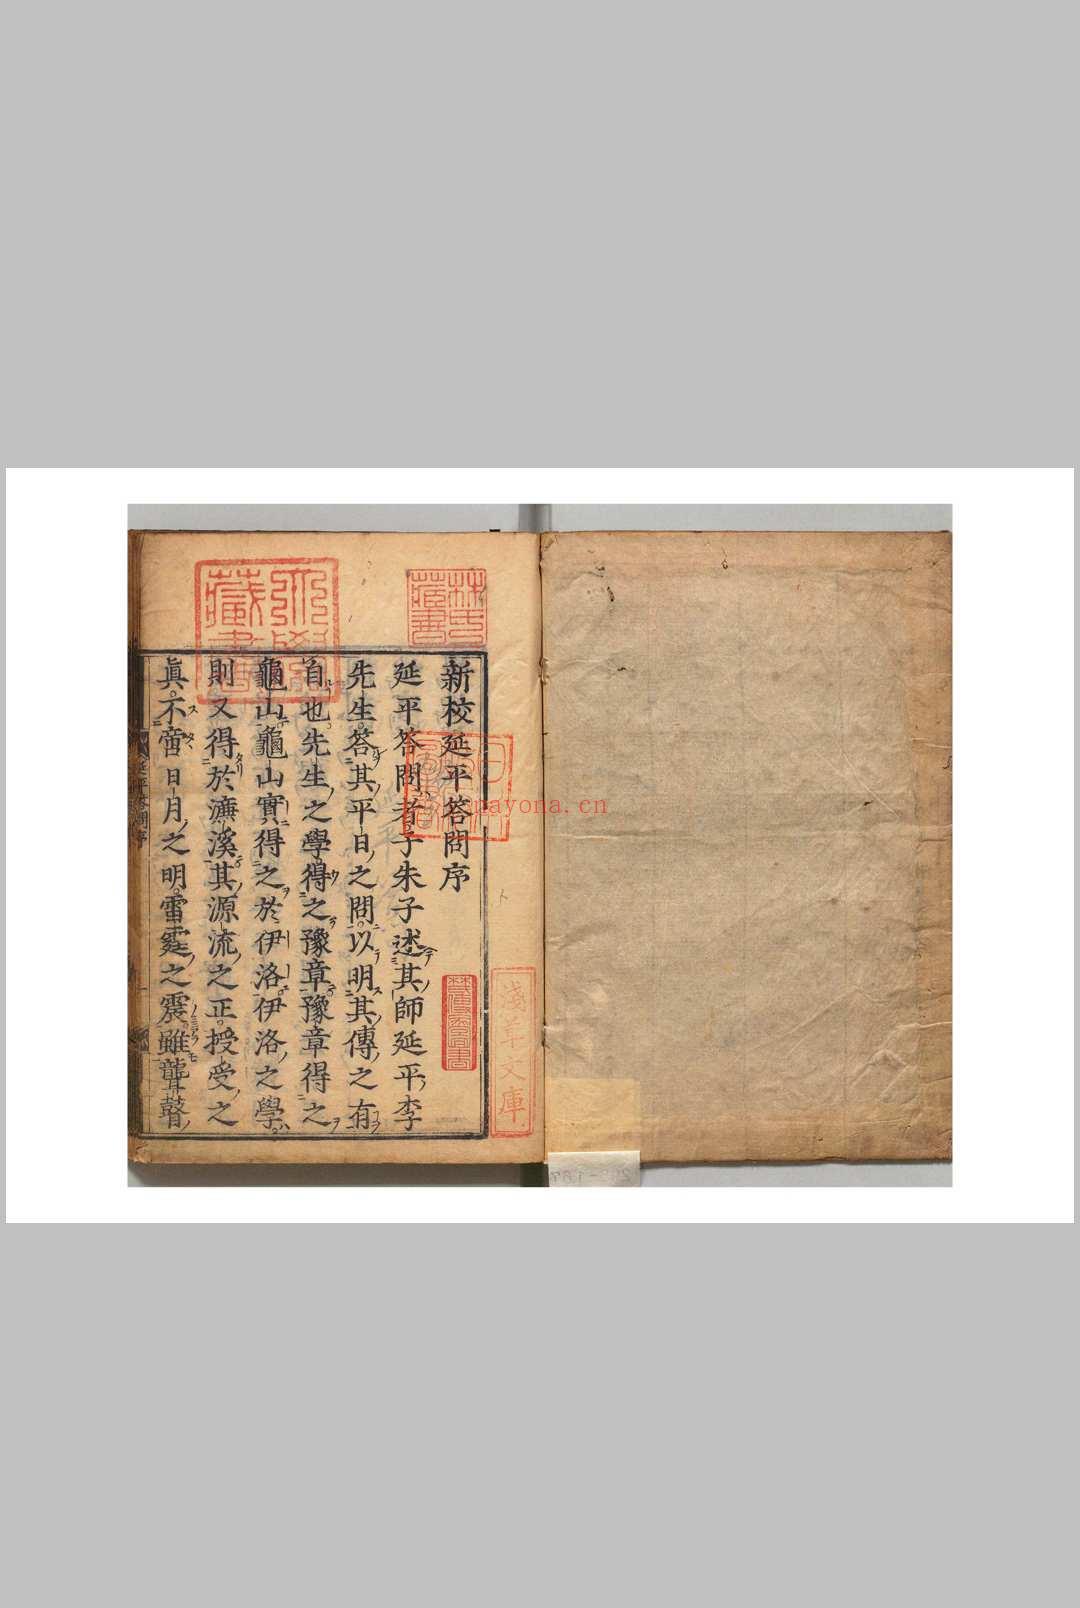 新校延平答問序
延平答問者子朱子述其師延平李
先生答其平日之問以明其傳之有
自也先生之學得之豫章豫章得之
龜山龜山實得之於伊洛伊洛之學
則又得於濂溪其源流之正授受之
眞不啻日月之明雷霆之震雖聾瞽
林氏藏書
藏書
淺草文庫
payona.cn